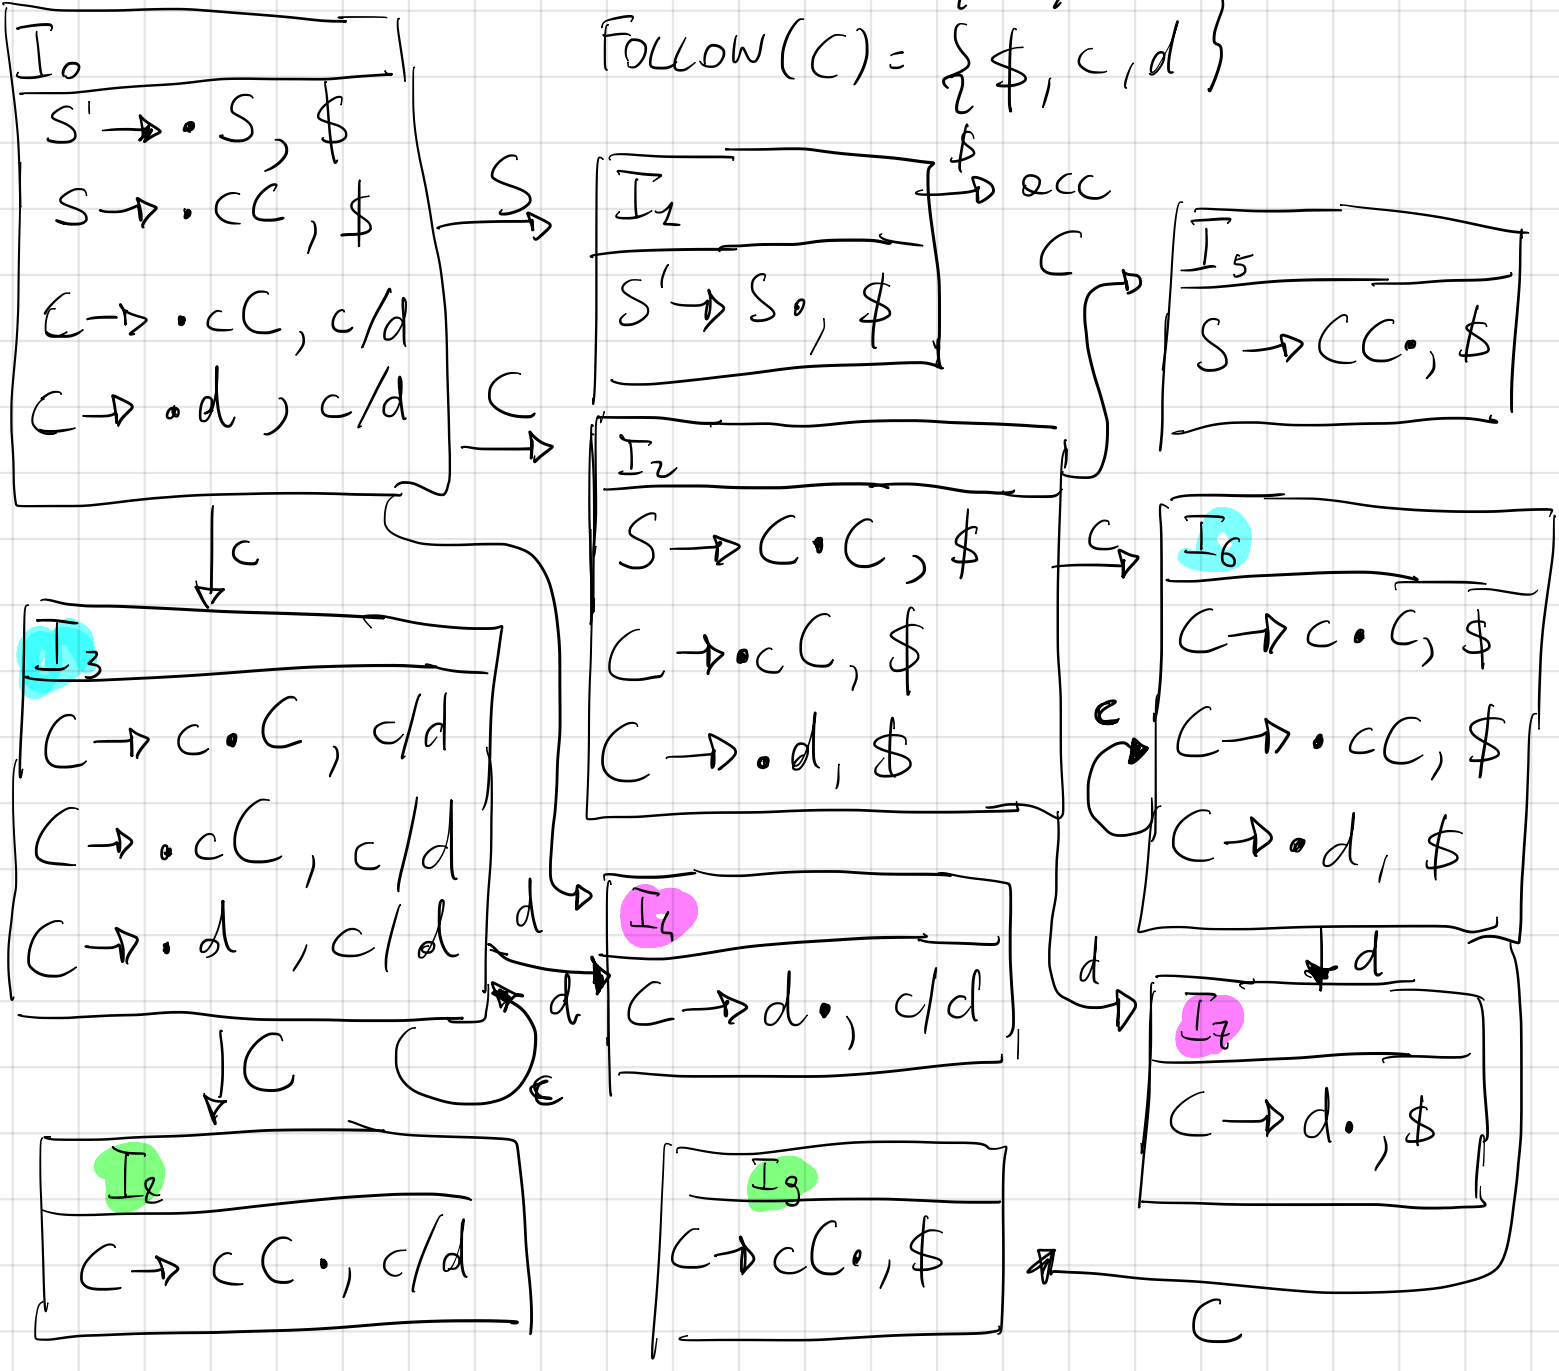 FOLLOW(C) = {$, c, d}
I0
S' → · S, $
S → · CC, $
C → · cC, c/d
C → · d, c/d
S
C
c
I1
S' → S ·, $
$
acc
C
I5
S → CC ·, $
I2
S → C · C, $
C → · cC, $
C → · d, $
c
I6
C → c · C, $
C → · cC, $
C → · d, $
c
I3
C → c · C, c/d
C → · cC, c/d
C → · d, c/d
d
d
I4
C → d ·, c/d
d
d
I7
C → d ·, $
C
c
I8
C → cC ·, c/d
I9
C → cC ·, $
C